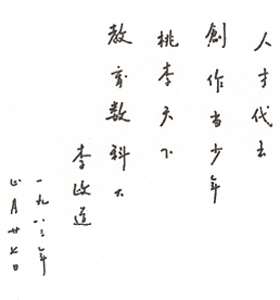 人才代出
創作当少年
桃李天下
教育数科大
李政道
一九八三年
正月廿七日